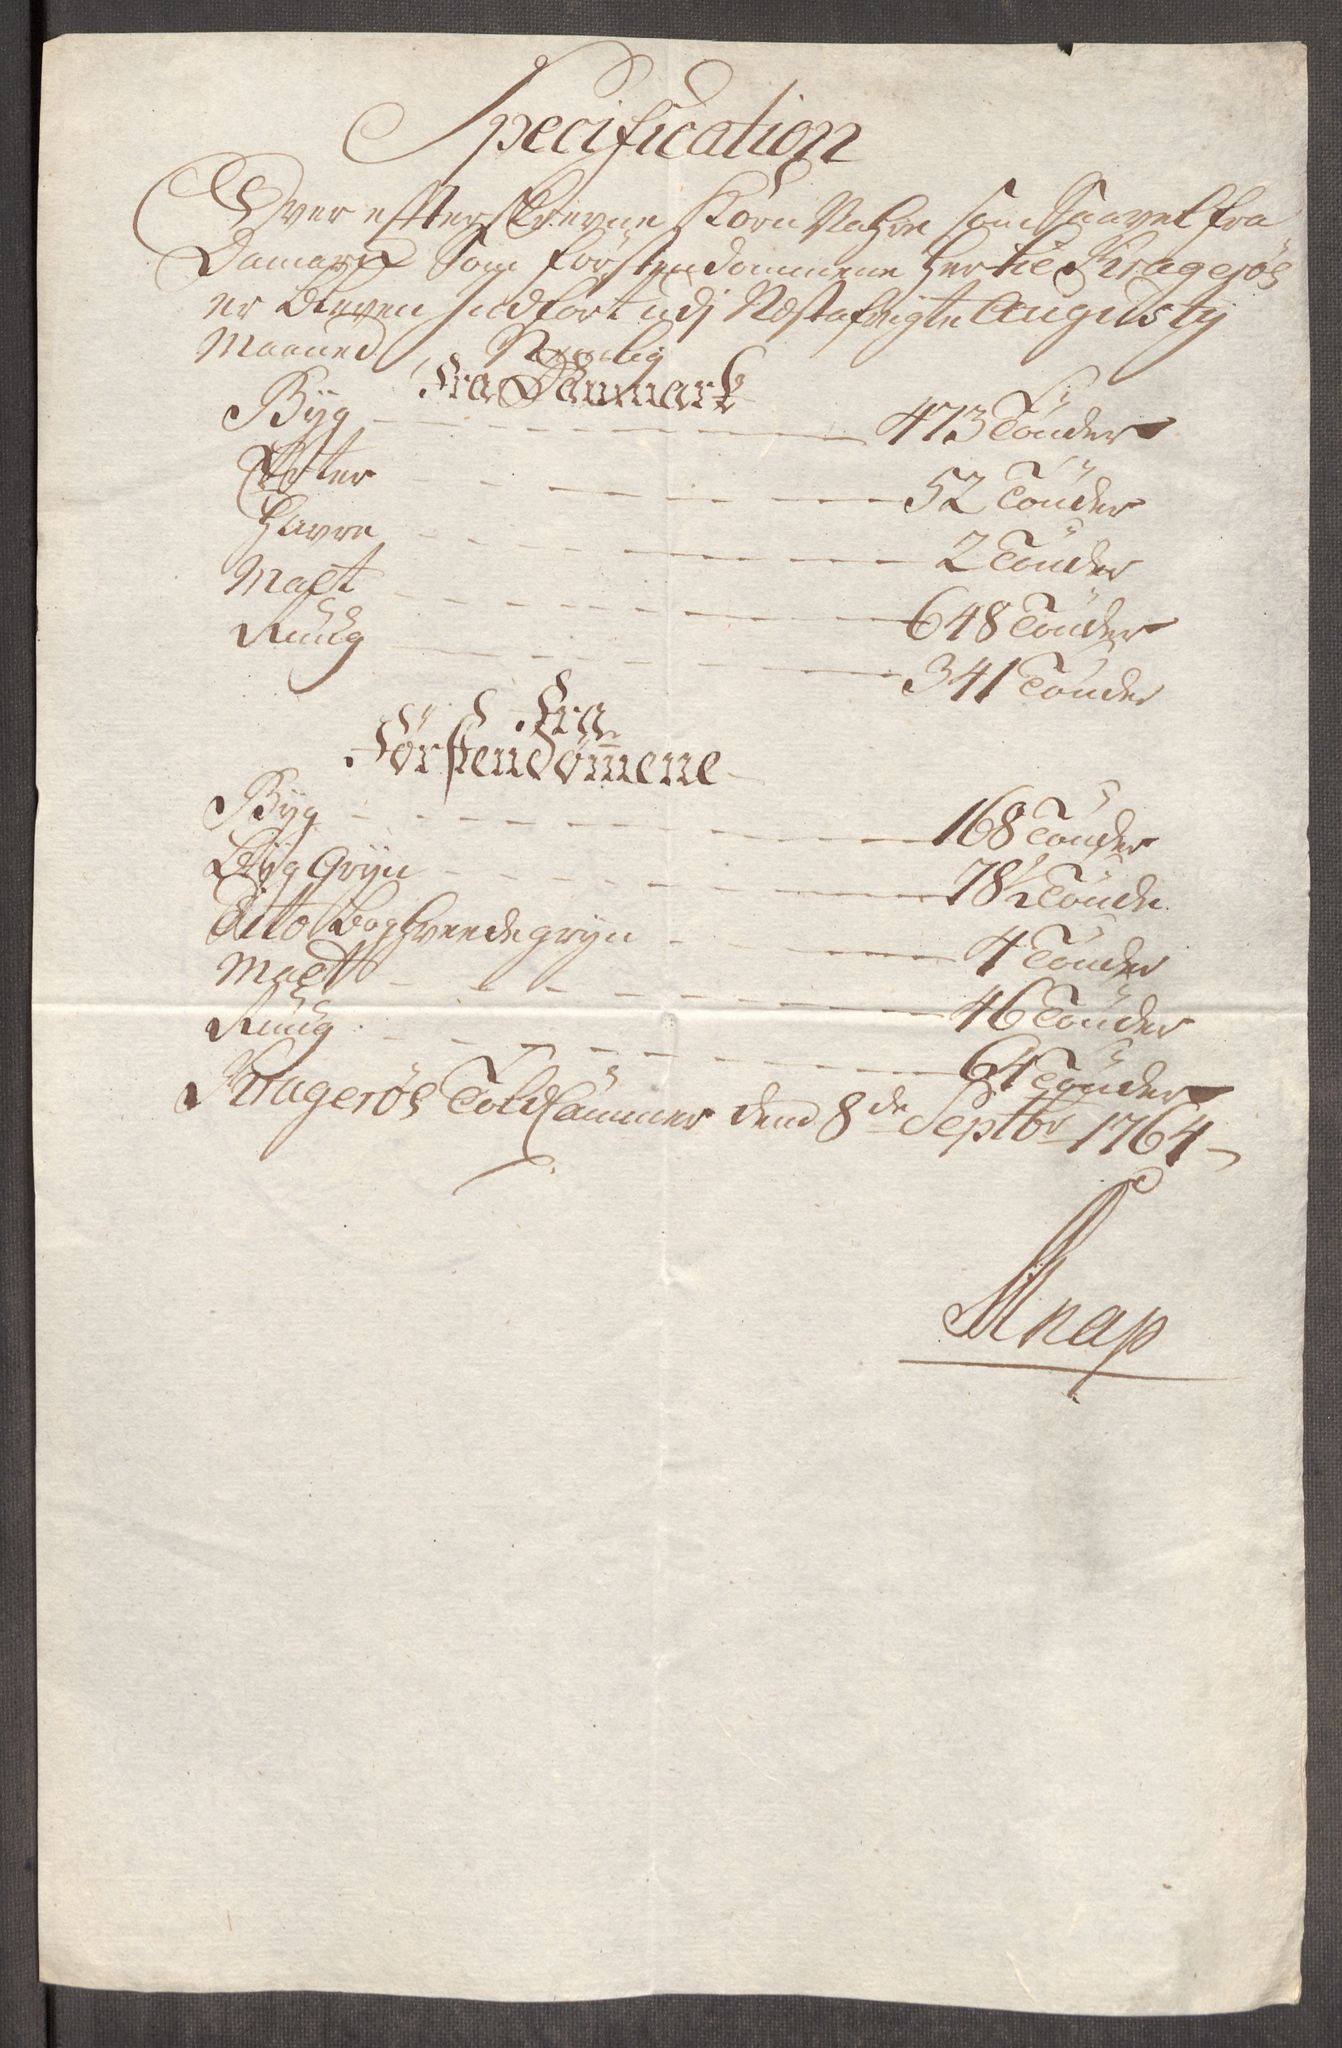 Specification
Over efterskrevne Korn Vahre som Saavel fra
Danmark Som förstendommene her til Kragerøe
er bleven Indfört udj Næstafvigte Augusty
Maaned. Nemlig
Fra Danmark
Byg 473 Tönder
Erter 52 Tönder
Havre 2 Tönder
Malt 648 Tönder
Ruug 341 Tönder
Fra
Förstendömene
Byg 168 Tönder
Byg Gryn 78 1/2 Tönde
Dito Boghveedegryn 4 Tönder
Malt 46 Tönder
Ruug 64 Tönder
Kragerøe Told Cammer dend 8de Septbr 1764
Knap